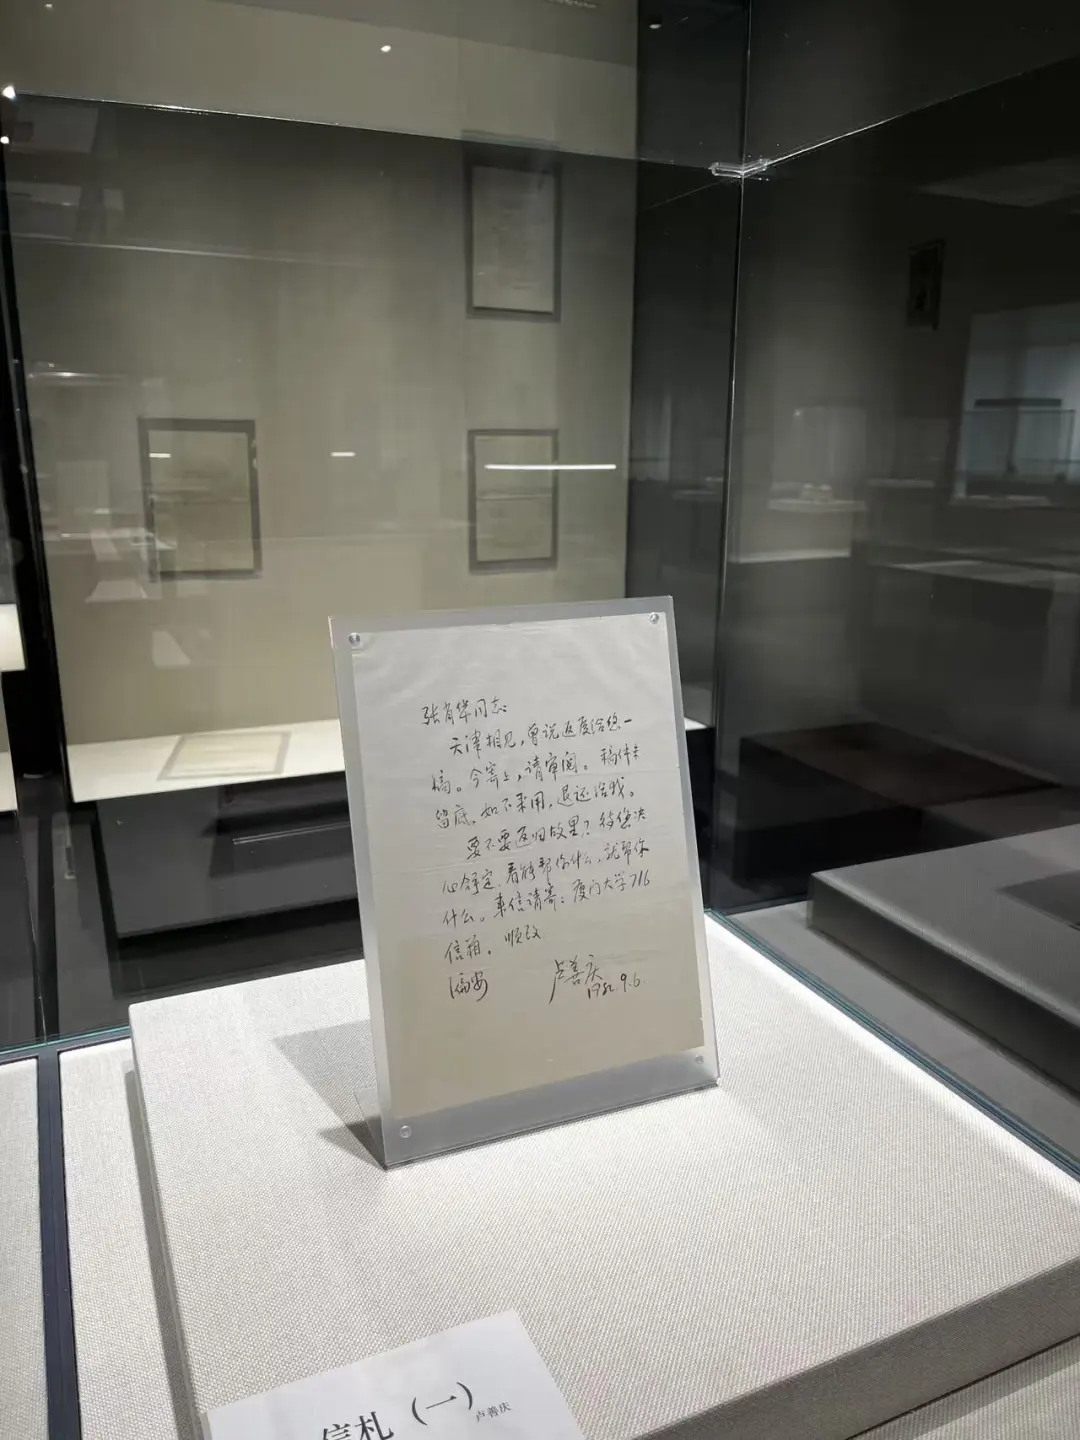 张肖华同志:
天津相见，曾说返厦给您一
稿。今寄上，请审阅。稿件未
留底，如不采用，退还给我。
要不要返归故里？待您决
心舒定，看能帮你什么，就帮你
什么。来信请寄：厦门大学716
信箱。顺致
编安
卢善庆
9.6.
信札（一）
卢善庆